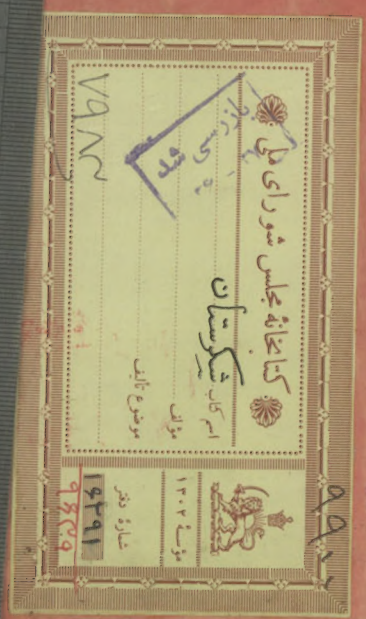 کتابخانهٔ مجلس شورای ملی
بازرسی شد
اسم کتاب شکرستان
مؤلف
موضوع تألیف
مؤسسهٔ ۱۳۰۲
شمارهٔ دفتر
۱۴۲۹۱